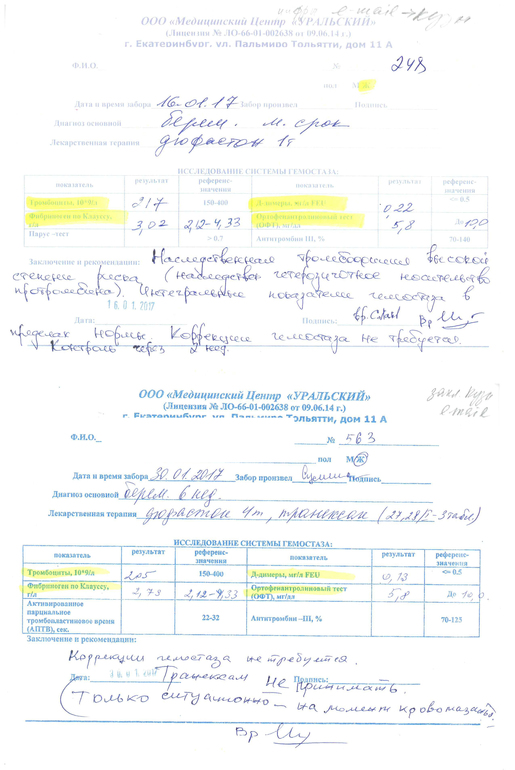 инфо e-mail → Кузн
ООО «Медицинский Центр «УРАЛЬСКИЙ»
(Лицензия № ЛО-66-01-002638 от 09.06.14 г.)
г. Екатеринбург, ул. Пальмиро Тольятти, дом 11 А
Ф.И.О. № 248
пол М/Ж
Дата и время забора 16.01.17 Забор произвел Подпись
Диагноз основной берем. м. срок
Лекарственная терапия дюфастон 1т
ИССЛЕДОВАНИЕ СИСТЕМЫ ГЕМОСТАЗА:
показатель результат референс-значения показатель результат референс-значения
Тромбоциты, 10*9/л 217 150-400 Д-димеры, мг/л FEU 0,22 <= 0,5
Фибриноген по Клауссу, г/л 3,02 2,12-4,33 Ортофенантролиновый тест (ОФТ), мг/дл 5,8 До 10,0
Парус -тест > 0.7 Антитромбин III, % 70-140
Заключение и рекомендации: Наследственная тромбофилия высокой
степени риска (наследств. гетерозиготное носительство
протромбина). Интегральные показатели гемостаза в
16 01. 2017
Дата: Подпись: Вр
пределах нормы. Коррекции гемостаза не требуется.
Контроль через 2 нед.
ООО «Медицинский Центр «УРАЛЬСКИЙ»
e-mail
(Лицензия № ЛО-66-01-002638 от 09.06.14 г.)
г. Екатеринбург, ул. Пальмиро Тольятти, дом 11 А
Ф.И.О. № 563
пол М/Ж
Дата и время забора 30.01.2017 Забор произвел Подпись
Диагноз основной берем. 6 нед.
Лекарственная терапия дюфастон 4т, транексам (27,28/I - 3табл)
ИССЛЕДОВАНИЕ СИСТЕМЫ ГЕМОСТАЗА:
показатель результат референс-значения показатель результат референс-значения
Тромбоциты, 10*9/л 205 150-400 Д-димеры, мг/л FEU 0,13 <= 0,5
Фибриноген по Клауссу, г/л 2,73 2,12-4,33 Ортофенантролиновый тест (ОФТ), мг/дл 5,8 До 10,0
Активированное парциальное тромбопластиновое время (АПТВ), сек. 22-32 Антитромбин –III, % 70-125
Заключение и рекомендации:
Коррекции гемостаза не требуется.
Дата: Транексам не принимать. Подпись:
(Только ситуационно – на момент кровомазанья)
Вр